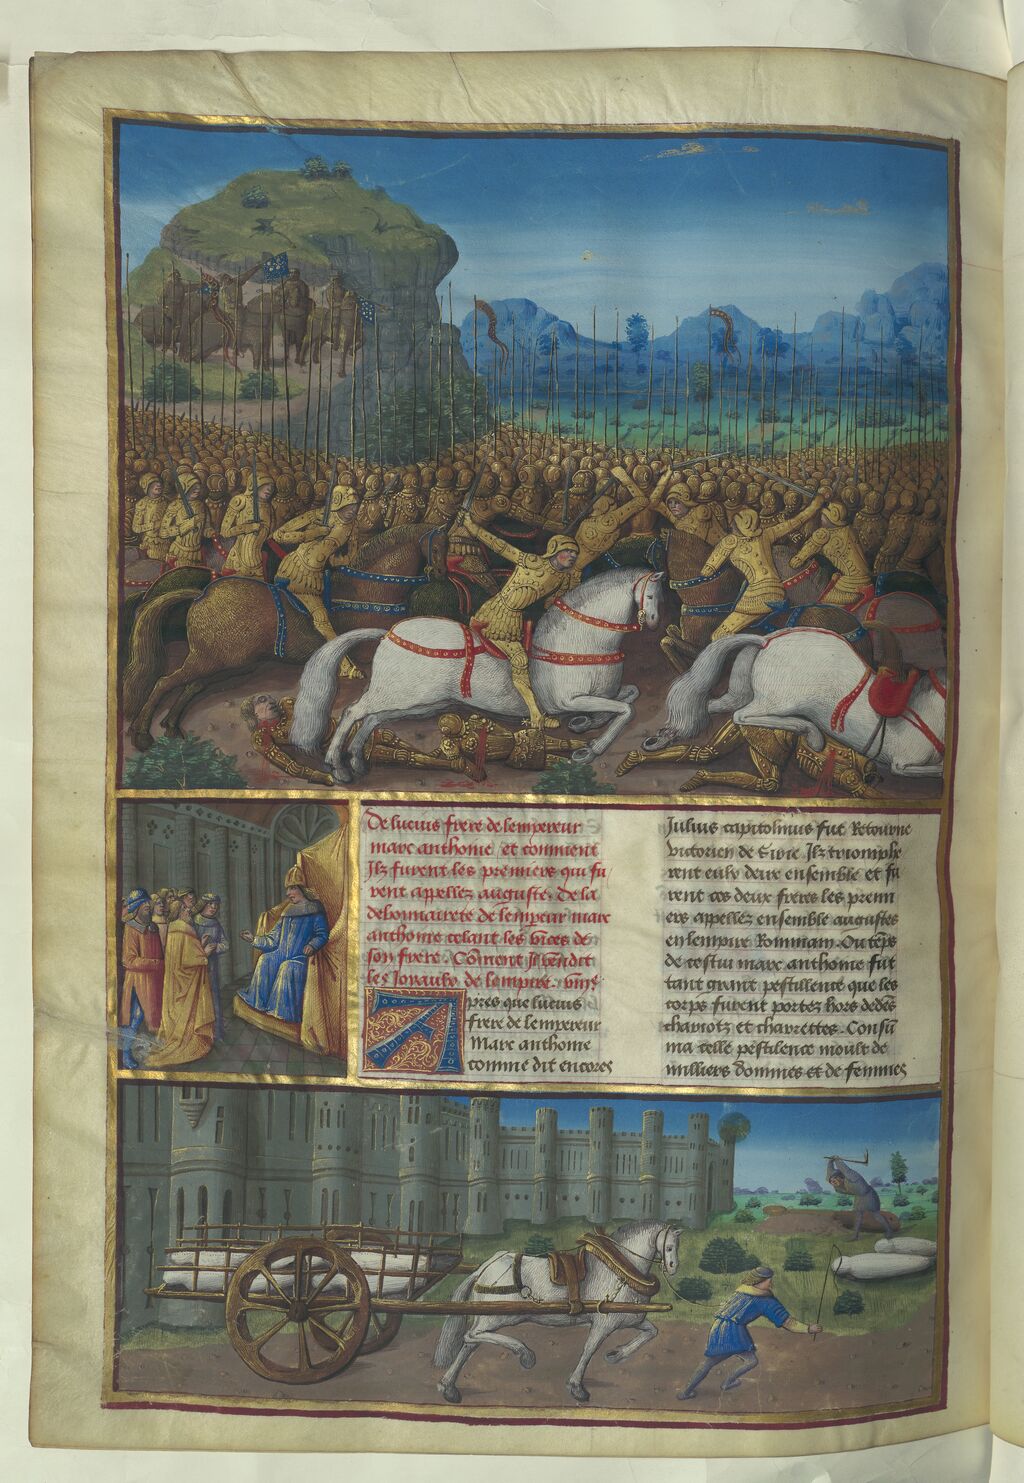 De lucius frere de lempereur
marc anthoine et comment
Ilz furent les premiers qui fu
rent appellez auguste. De la
debonnairete de lempeur marc
anthoine celant les vices de
son frere. Coment Il vendit
les Ioyaulx de lempire. viiie
Apres que lucius
frere de lempereur
Marc anthoine
comme dit encores
Julius capitolinus fut Retourne
victorien de Sirie Ilz triumphe
rent eulx deux ensemble et fu
rent ces deux freres les premi
ers appellez ensemble augustes
en lempire Rommain. Ou teps
de cestui marc anthoine fut
tant grant pestillence que les
corps furent portez hors dedes
chariotz et charrettes. Consu
ma celle pestilence moult de
milliers dommes et de femmes